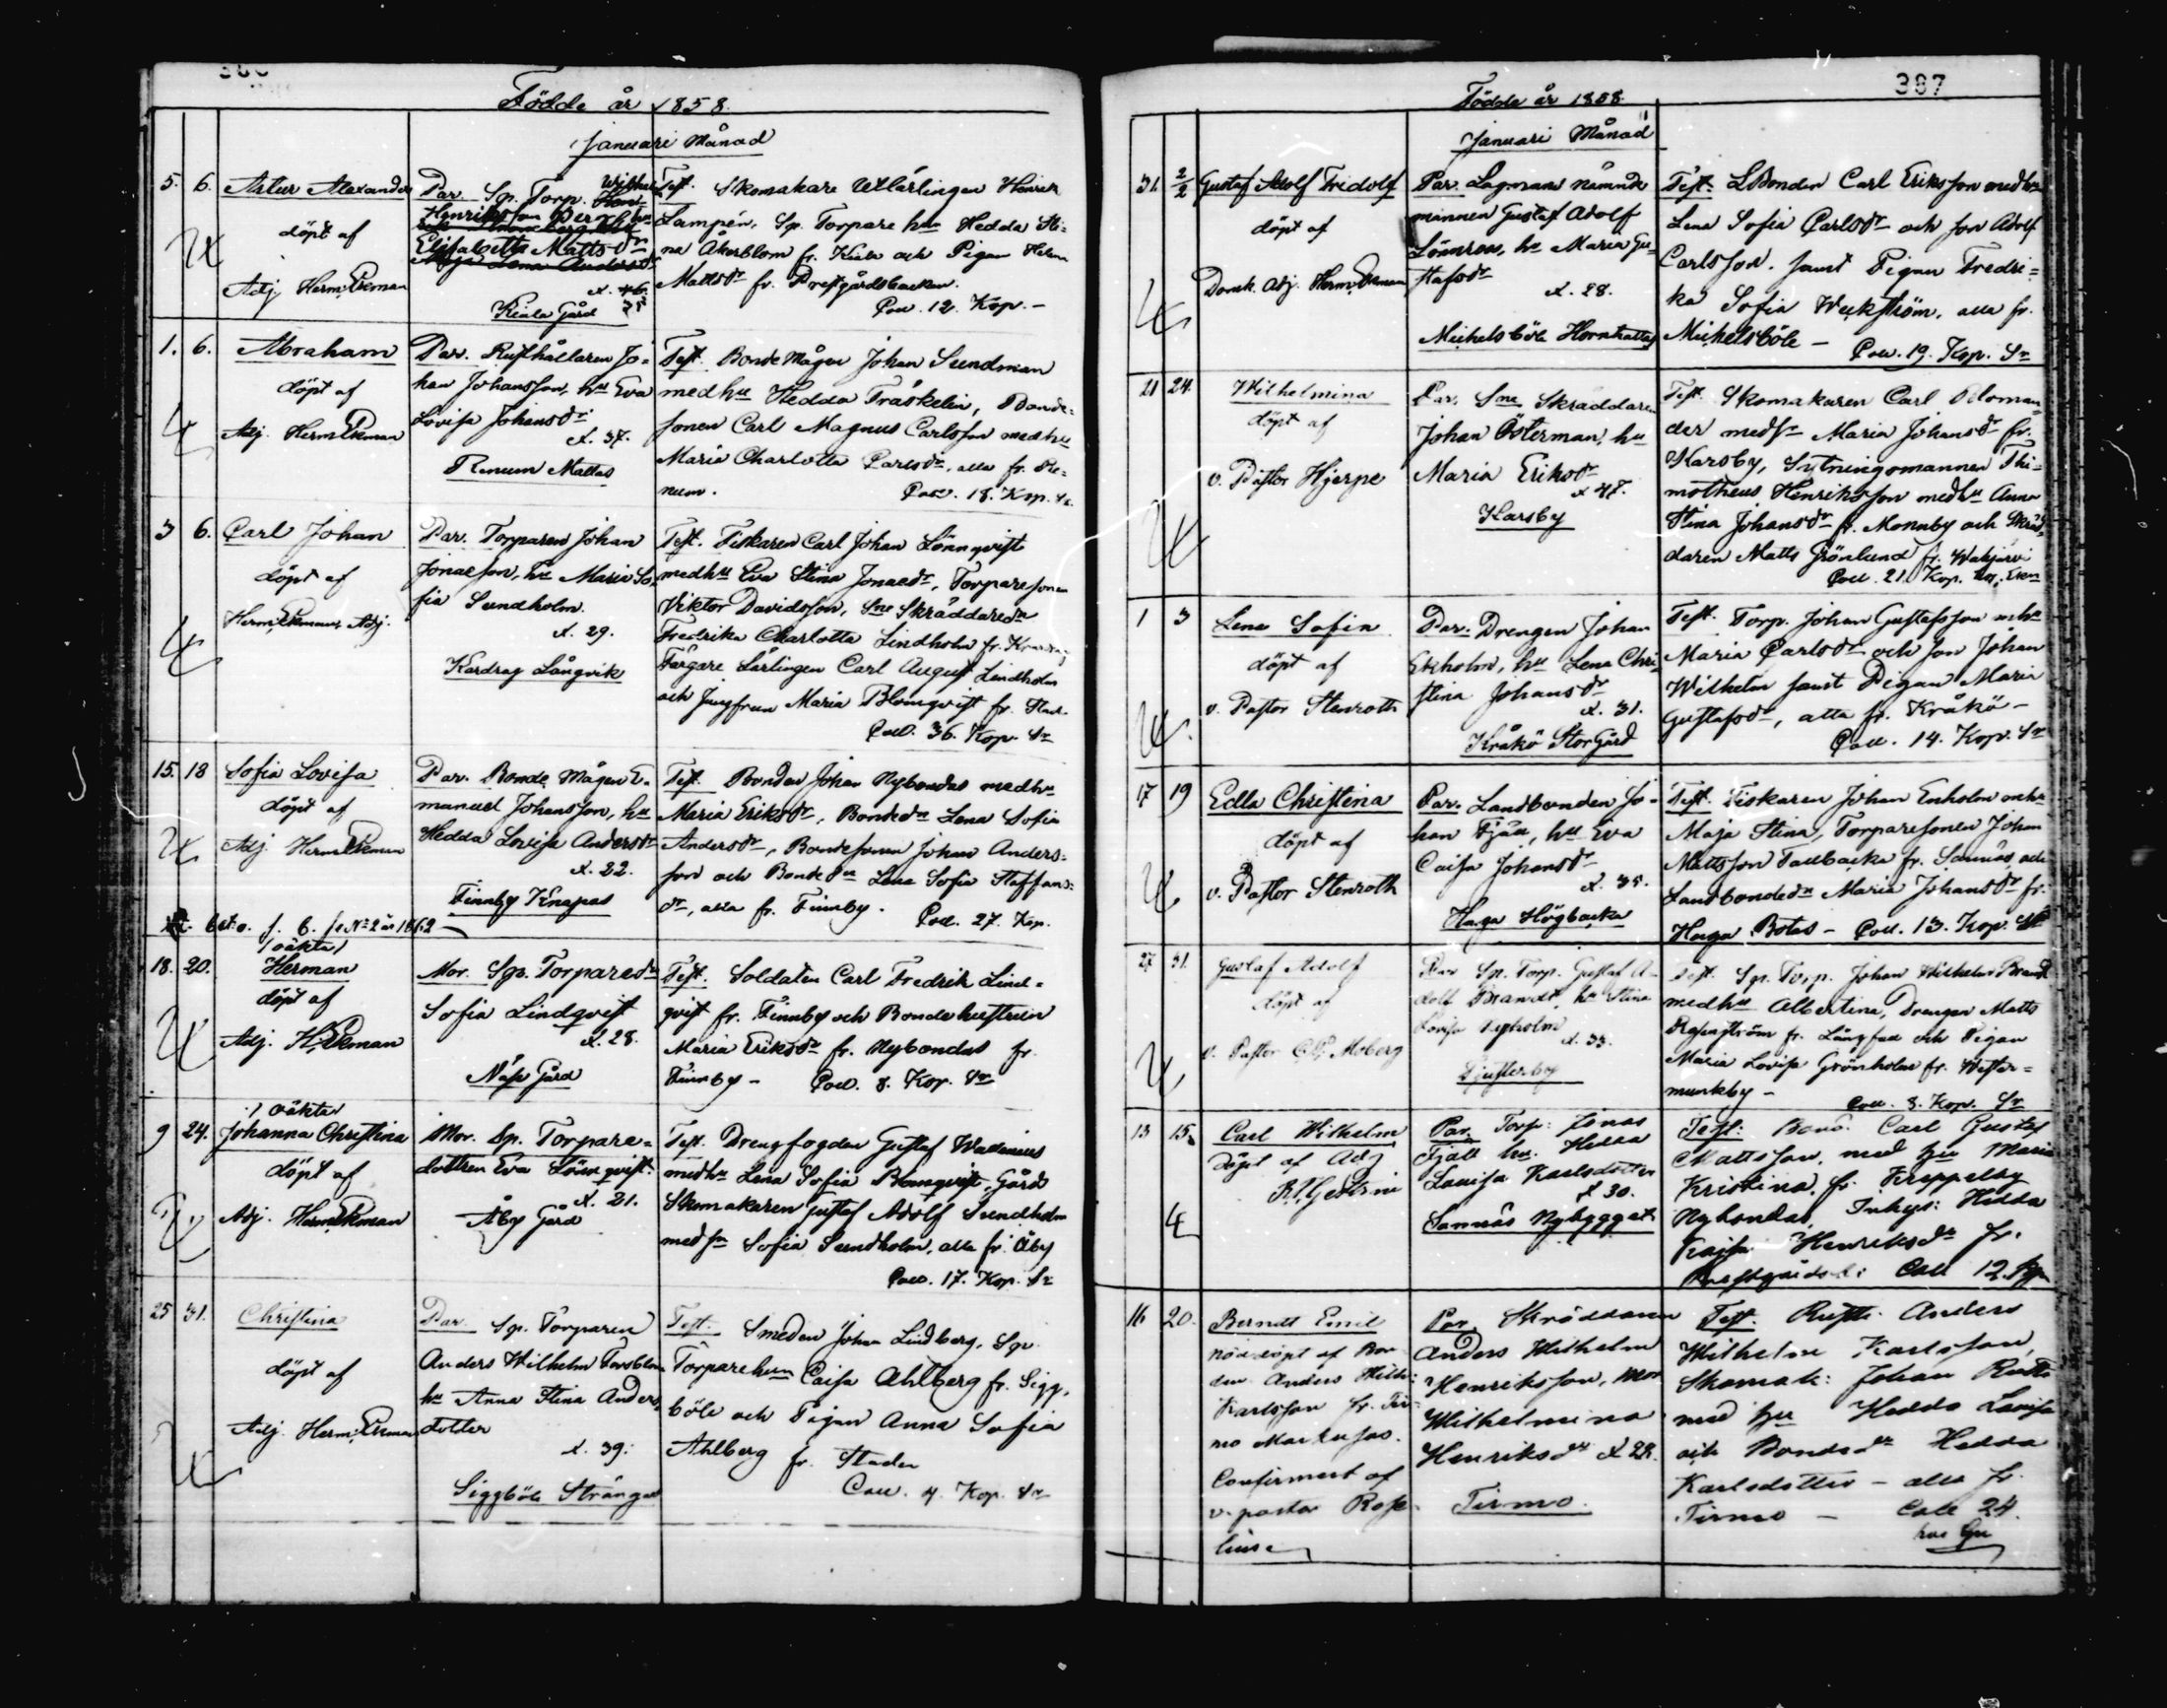 Födde år 1858.
Januari Månad
5. 6. Artur Alexander
döpt af
Adj. Herm. Ekman
Par. Sp. Torp. Wilhelm
Henriksson Berg hu
Elisabetha Matts dr
Kiala Gård
Test. Skomakare Utlärlingen Henrik
Lampén, Sp. Torpare hu Hedda Sti-
na Åkerblom fr. Kiala och Pigan Helena
Mattsdr fr. Prestgårdsbacken.
Coll. 12. Kop. –
1. 6. Abraham
döpt af
Adj. Herm Ekman
Par. Rusthållaren Jo-
han Johansson, hu Eva
Lovisa Johansdr
x. 37.
Renum Mattas
Test. Bonde Mågen Johan Sundman
med hu Hedda Träskelin, Bonde-
sonen Carl Magnus Carlsson med hu
Maria Charlotta Carlsdr, alla fr. Re-
num.
Coll. 18. Kop. Sr.
3 6. Carl Johan
döpt af
Herm. Ekman, Adj.
Par. Torparen Johan
Jonasson, hu Maria So-
fia Sundholm.
x. 29.
Kardrag Långvik
Test. Fiskaren Carl Johan Lönnqvist
med hu Eva Stina Jonaedr, Torparesonen
Viktor Davidsson, Sne Skräddaredr
Fredrika Charlotta Lindholm fr. Kardrag
Färgare Lärlingen Carl August Lindholm
och Jungfrun Maria Blomqvist fr. Stad.
Coll. 36. Kop. Sr
15. 18 Sofia Lovisa
döpt af
Adj. Herm Ekman
Par. Bonde Mågen E-
manuel Johansson, hu
Hedda Lovisa Andersdr
x. 22.
Finnby Knapas
Test. Bonden Johan Nybondas med hu
Maria Eriksdr, Bondedr Lena Sofia
Andersdr, Bondesonen Johan Anders-
son och Bondedr Lena Sofia Staffans-
dr, alla fr. Finnby.
Coll. 27. Kop.
f. 6. se No 2 år 1862
/oäkta/
18. 20. Herman
döpt af
Adj. H. Ekman
Mor. Sp. Torparedr
Sofia Lindqvist
x. 28.
Näse Gård
Test. Soldaten Carl Fredrik Lind-
qvist fr. Finnby och Bondehustrun
Maria Eriksdr fr. Nybondas fr.
Finnby – Coll. 8. Kop. Sr
/oäkta/
9 24. Johanna Christina
döpt af
Adj. Herm Ekman
Mor. Sp. Torpare-
dottren Eva Lönnqvist.
x. 21.
Åby Gård
Test. Drengfogden Gustaf Wadenius
med hu Lena Sofia Blomqvist, Gårds
Skomakaren Gustaf Adolf Sundholm
med sr Sofia Sundholm, alla fr. Åby
Coll. 17. Kop. Sr
25 31. Christina
döpt af
Adj. Herm. Ekman
Par. Sp. Torparen
Anders Wilhelm Forsblom
hu Anna Stina Anders-
dotter
x. 39.
Siggböle Strångas
Test. Smeden Johan Lindberg, Sp.
Torparehun Caisa Ahlberg fr. Sigg-
böle och Pigan Anna Sofia
Ahlberg fr. Staden
Coll. 4. Kop. Sr
387
Födde år 1858.
Januari Månad
31. 2/2 Gustaf Adolf Fridolf
döpt af
Domk. Adj. Herm. Ekman
Par. Lagmans nämnde
mannen Gustaf Adolf
Lönnroos, hu Maria Gu-
stafsdr
x. 28.
Michelsböle Hornhattas
Test. LBonden Carl Eriksson med hu
Lena Sofia Carlsdr och son Adolf
Carlsson. samt Pigan Fredri-
ka Sofia Weckström, alla fr.
Michelsböle – Coll. 19. Kop. Sr
21 24. Wilhelmina
döpt af
v. Pastor Hjerpe
Par. Sne Skräddaren
Johan Österman, hu
Maria Eriksdr
x 47.
Karsby
Test. Skomakaren Carl Peloman-
der med sr Maria Johansdr fr.
Karsby, Sytningsmannen Thi-
motheus Henriksson med hu Anna
Stina Johansdr fr. Monnby och Skräd-
daren Matts Grönlund fr. Wakjärvi
Coll. 21. Kop.
1 3 Lena Sofia
döpt af
v. Pastor Stenroth
Par. Drengen Johan
Ekholm, hu Lena Chri-
stina Johansdr
x. 31.
Kråkö Storgård
Test. Torp. Johan Gustafsson m hu
Maria Carlsdr och son Johan
Wilhelm samt Pigan Maria
Gustafsdr, alla fr. Kråkö –
Coll. 14. Kop. Sr
17 19 Edla Christina
döpt af
v. Pastor Stenroth
Par. Landbonden Jo-
han Fjäll, hu Eva
Caisa Johansdr
x. 35.
Haga Högbacka
Test. Fiskaren Johan Enholm m hu
Maja Stina, Torparesonen Johan
Mattsson Tallbacka fr. Sannäs och
Landbondedr Maria Johansdr fr.
Haga Botas – Coll. 13. Kop. Sr
27 31. Gustaf Adolf
döpt af
v. Pastor Moberg
Par Sp. Torp. Gustaf A-
dolf Brandt, hu Stina
Lovisa Nyholm
x. 33.
Gjusterby
Test. Sp. Torp. Johan Wilhelm Brandt
med hu Albertina, Drengen Matts
Rosenström fr. Långfall och Pigan
Maria Lovisa Grönholm fr. Wester-
munkby –
Coll. 8. Kop. Sr
13 15. Carl Wilhelm
döpt af Adj
Par. Torp: Jonas
Fjäll hu. Hedda
Lovisa Karlsdotter
x 30.
Sannäs Nybygget
Test: Bond. Carl Gustaf
Mattsson, med hu Maria
Kristina, fr. Kreppelby
Nybondas, Inhys: Hedda
Kajsa Henriksdr fr.
Coll 12. Kop
16 20. Berndt Emil
nöddöpt af Bon-
den Anders Wilh:
Karlsson fr. Tir-
mo Markusas.
Confirmert af
v. pastor Rose-
lius.
Par. Skräddaren
Anders Wilhelm
Henriksson, Mor
Wilhelmina
Henriksdr x 28.
Tirmo.
Test. Rusth. Anders
Wilhelm Karlsson,
Skomak: Johan
med hu Hedda Lovisa
och Bondedr Hedda
Karlsdotter – alla fr.
Tirmo – Coll 24.